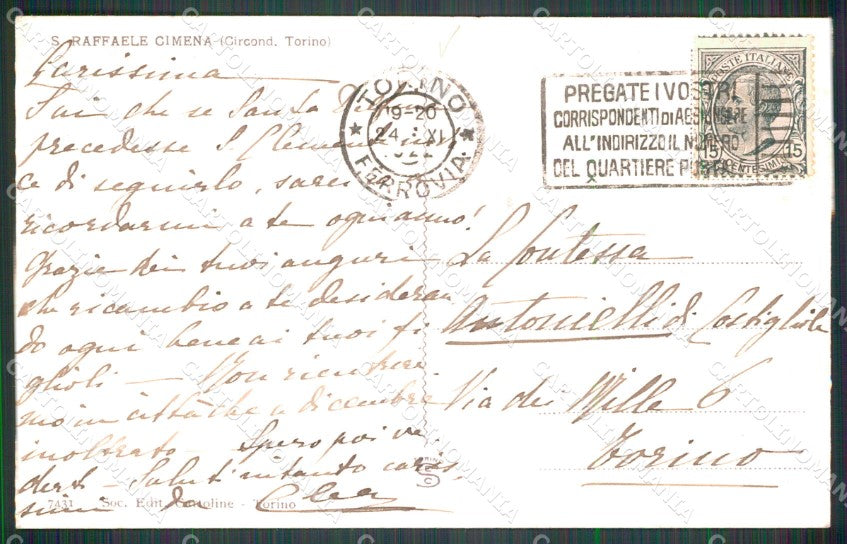 S. RAFFAELE CIMENA (Circond. Torino)
Carissima
Sai che se Santa
precedesse S. Clemente in
ce di seguirlo, sarei
ricordarmi a te ogni anno!
Grazie dei tuoi auguri
che ricambio a te desideran
do ogni bene ai tuoi fi
glioli — Non rientrere
mo in città che a dicembre
inoltrato — Spero poi ve
derti — Saluti intanto caris
simi da Clea
7431 Soc. Edit. Cartoline - Torino
TORINO
19-20
24 XI
FERROVIA
PREGATE I VOSTRI
CORRISPONDENTI DI AGGIUNGERE
ALL'INDIRIZZO IL NUMERO
DEL QUARTIERE POSTALE
POSTE ITALIANE
15 CENTESIMI 15
La Contessa
Antonielli di Costigliole
Via dei Mille 6
Torino
CARTOLINOMANIA